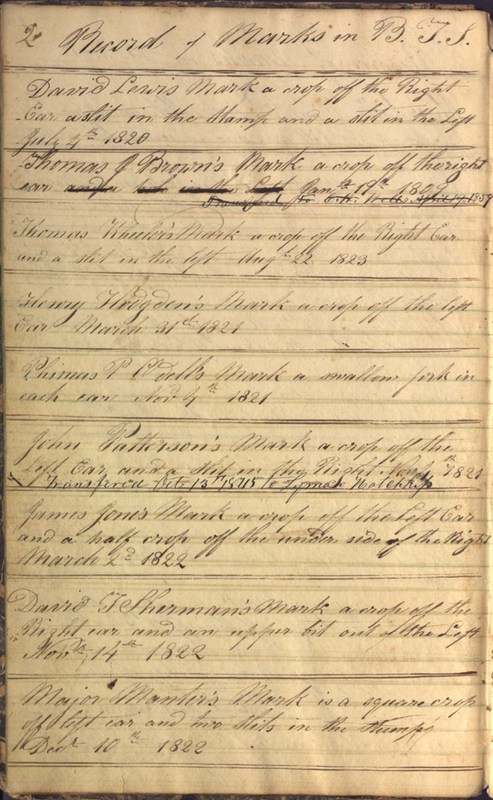 2 Record of Marks in B. T. S.
David Lewis Mark a crop off the Right
Ear a slit in the stump and a slit in the Left
July 4th 1820
Thomas J Brown's Mark a crop off the right
ear and a hole in the Left Jany 19th 1809
Transferred to
Thomas Wheeler's Mark a crop off the Right Ear
and a slit in the left Augt 22 1823
Henry Hodgden's Mark a crop off the left
Ear March 31st 1821
Mark a swallow fork in
each ear Novr 4th 1821
John Patterson's Mark a crop off the
Left Ear, and a slit in the Right 1821
Transfered Octo 13th to Lyman
James Jones Mark a crop off the Left Ear
and a half crop off the under side of the Right
March 2d 1822
David T Sherman's Mark a crop off the
Right ear and an upper bit out of the Left
Novr 14th 1822
Major Manter's Mark is a square crop
off left ear and two slits in the stump
Decr 10th 1822